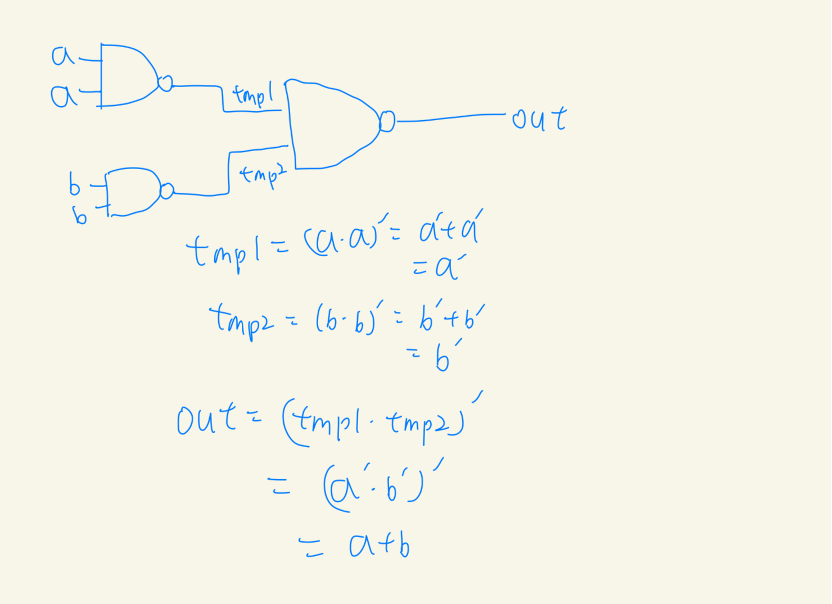 a
a
tmp1
out
b
b
tmp2
tmp1 = (a·a)′ = a′+a′
= a′
tmp2 = (b·b)′ = b′+b′
= b′
out = (tmp1·tmp2)′
= (a′·b′)′
= a+b